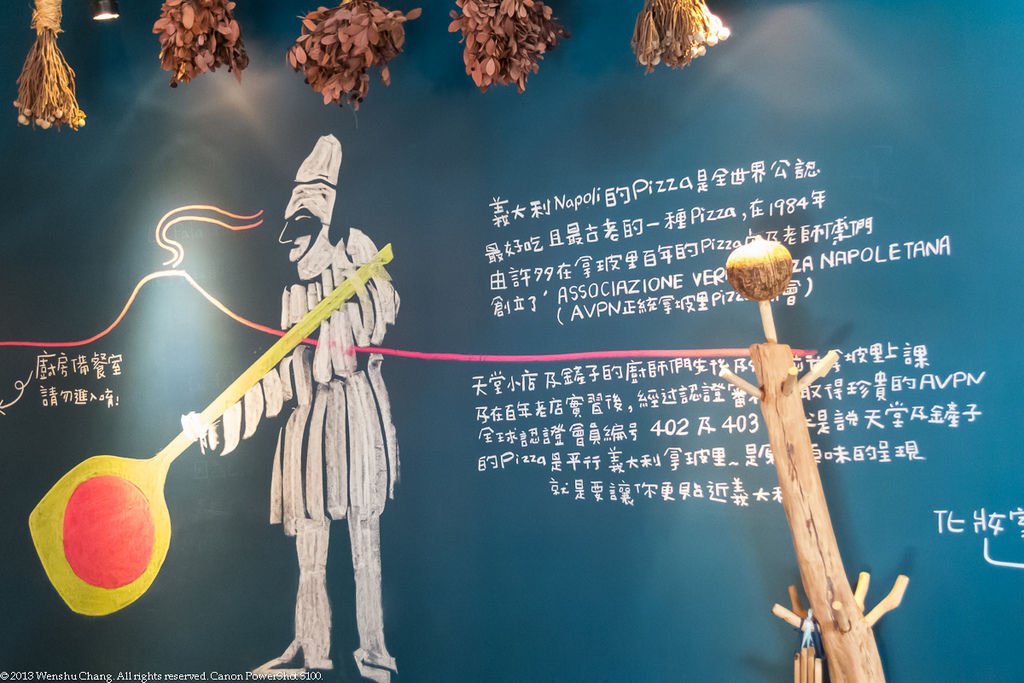 義大利Napoli的Pizza是全世界公認
最好吃且最古老的一種Pizza,在1984年
由許多在拿坡里百年的Pizza 及老師傅們
創立了 ASSOCIAZIONE PIZZA NAPOLETANA
(AVPN正統拿坡里Pizza 會)
天堂小店及鏟子的廚師們先後 拿坡里上課
及在百年老店實習後,經过認證 取得珍貴的AVPN
全球認證會員編号 402及403 是說天堂及鏟子
的Pizza是平行義大利拿坡里~是 味的呈現
就是要讓你更貼近義大利
廚房備餐室
請勿進入唷!
化妝室
© 2013 Wenshu Chang. All rights reserved. Canon PowerShot S100.